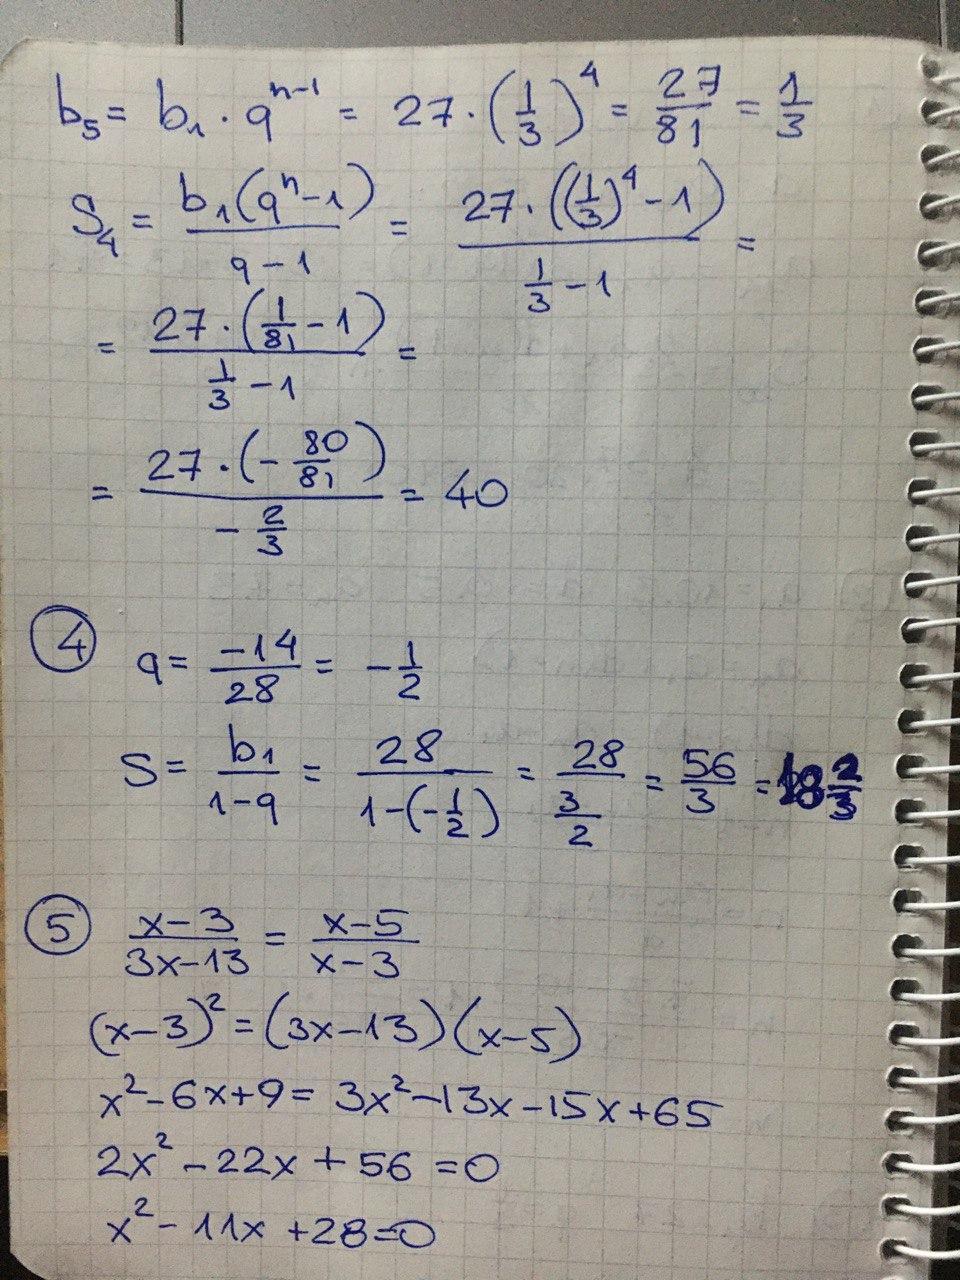 b₅ = b₁ · q^(n-1) = 27 · (1/3)^4 = 27/81 = 1/3
S₄ = b₁(q^n - 1)/(q - 1) = 27 · ((1/3)^4 - 1)/(1/3 - 1) =
= 27 · (1/81 - 1)/(1/3 - 1) =
= 27 · (-80/81)/(-2/3) = 40
④ q = -14/28 = -1/2
S = b₁/(1 - q) = 28/(1 - (-1/2)) = 28/(3/2) = 56/3 = 18 2/3
⑤ (x - 3)/(3x - 13) = (x - 5)/(x - 3)
(x - 3)² = (3x - 13)(x - 5)
x² - 6x + 9 = 3x² - 13x - 15x + 65
2x² - 22x + 56 = 0
x² - 11x + 28 = 0